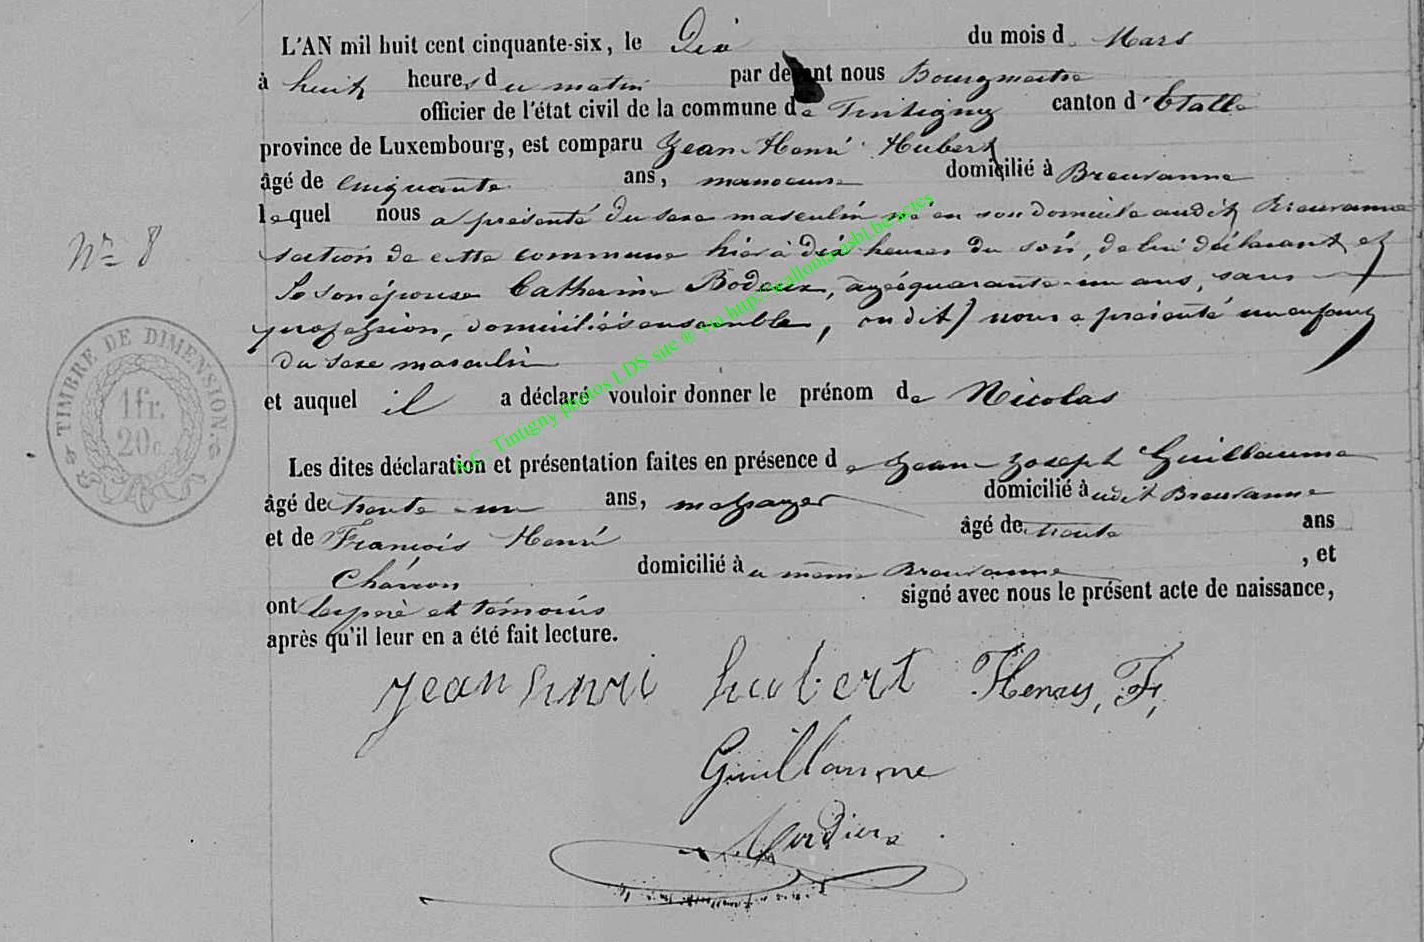 L'AN mil huit cent cinquante-six, le Dix du mois de Mars
à huit heures du matin par devant nous Bourgmestre
officier de l'état civil de la commune de Tintigny canton d'Etalle
province de Luxembourg, est comparu Jean Henri Hubert
âgé de cinquante ans, manoeuvre domicilié à Breuvanne
lequel nous a présenté du sexe masculin né en son domicile audit Breuvanne
section de cette commune hier à dix heures du soir, de lui déclarant et
de son épouse Catherine Bodeux, âgée quarante-un ans, sans
profession, domiciliés ensemble, on dit) nous a présenté un enfant
du sexe masculin
et auquel il a déclaré vouloir donner le prénom de Nicolas
Les dites déclaration et présentation faites en présence de Jean Joseph Guillaume
âgé de trente-un ans, messager domicilié audit Breuvanne
et de François Henri âgé de trente ans
Charron domicilié à u même Breuvanne, et
ont les père et témoins signé avec nous le présent acte de naissance,
après qu'il leur en a été fait lecture.
jean henri hubert Henry, F,
Guillaume
N° 8
TIMBRE DE DIMENSION.
1fr.
20c.
A.C. Tintigny photos LDS site ® via http://wallonia-asbl.be/actes